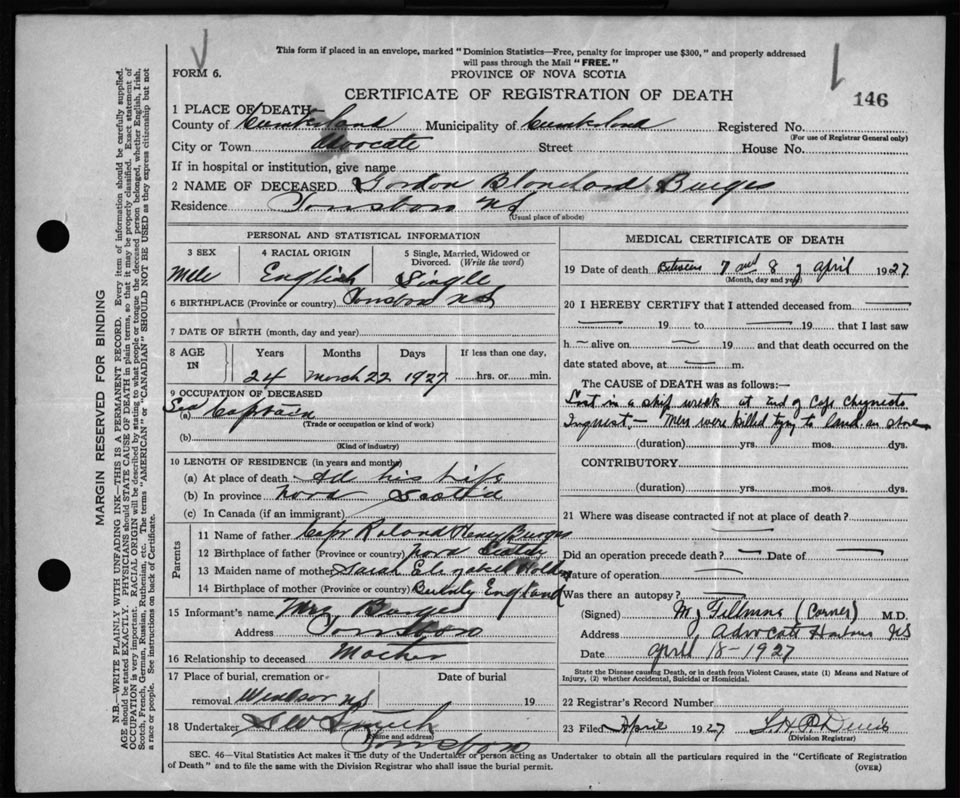 This form if placed in an envelope, marked "Dominion Statistics—Free, penalty for improper use $300," and properly addressed
will pass through the Mail "FREE."
FORM 6.
PROVINCE OF NOVA SCOTIA
CERTIFICATE OF REGISTRATION OF DEATH
146
1 PLACE OF DEATH
County of Cumberland Municipality of Cumberland Registered No.
(For use of Registrar General only)
City or Town Advocate Street House No.
If in hospital or institution, give name
2 NAME OF DECEASED Gordon Blanchard Burges
Residence NS
(Usual place of abode)
PERSONAL AND STATISTICAL INFORMATION
3 SEX 4 RACIAL ORIGIN 5 Single, Married, Widowed or Divorced. (Write the word)
Male English Single
6 BIRTHPLACE (Province or country) NS
7 DATE OF BIRTH (month, day and year)
8 AGE IN Years Months Days If less than one day,
24 March 22 1927 hrs. or min.
9 OCCUPATION OF DECEASED
(a) Sea Captain
(Trade or occupation or kind of work)
(b)
(Kind of industry)
10 LENGTH OF RESIDENCE (in years and months)
(a) At place of death his life
(b) In province Nova Scotia
(c) In Canada (if an immigrant)
Parents
11 Name of father Capt Roland Burges
12 Birthplace of father (Province or country) Nova Scotia
13 Maiden name of mother Sarah Elizabeth
14 Birthplace of mother (Province or country) England
15 Informant's name Mrs Burges
Address
16 Relationship to deceased Mother
17 Place of burial, cremation or Date of burial
removal Windsor NS 19
18 Undertaker
(Name and address)
MEDICAL CERTIFICATE OF DEATH
19 Date of death Between 7 and 8 of April 1927
(Month, day and year)
20 I HEREBY CERTIFY that I attended deceased from
19 to 19 that I last saw
h alive on 19 and that death occurred on the
date stated above, at m.
The CAUSE OF DEATH was as follows:—
Lost in a ship wreck at end of Cape
Inquest — Men were killed trying to land on shore
(duration) yrs. mos. dys.
CONTRIBUTORY
(duration) yrs. mos. dys.
21 Where was disease contracted if not at place of death?
Did an operation precede death? Date of
Nature of operation
Was there an autopsy?
(Signed) (Corner) M.D.
Address Advocate Harbour NS
Date April 18-1927
State the Disease causing Death, or in death from Violent Causes, state (1) Means and Nature of
Injury, (2) whether Accidental, Suicidal or Homicidal.
22 Registrar's Record Number
23 Filed April 1927
(Division Registrar)
SEC. 46—Vital Statistics Act makes it the duty of the Undertaker or person acting as Undertaker to obtain all the particulars required in the "Certificate of Registration
of Death" and to file the same with the Division Registrar who shall issue the burial permit.
(OVER)
MARGIN RESERVED FOR BINDING
N.B.—WRITE PLAINLY WITH UNFADING INK—THIS IS A PERMANENT RECORD. Every item of information should be carefully supplied.
AGE should be stated EXACTLY. PHYSICIANS should STATE CAUSE OF DEATH in plain terms, so that it may be properly classified. Exact statement of
OCCUPATION is very important. RACIAL ORIGIN will be described by stating to what people or tongue the deceased person belonged, whether English, Irish,
Scotch, French, German, Russian, Ruthenian, etc. The terms "AMERICAN" or "CANADIAN" SHOULD NOT BE USED as they express citizenship but not
a race or people. See instructions on back of Certificate.